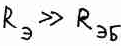 Rэ ≫ Rэб